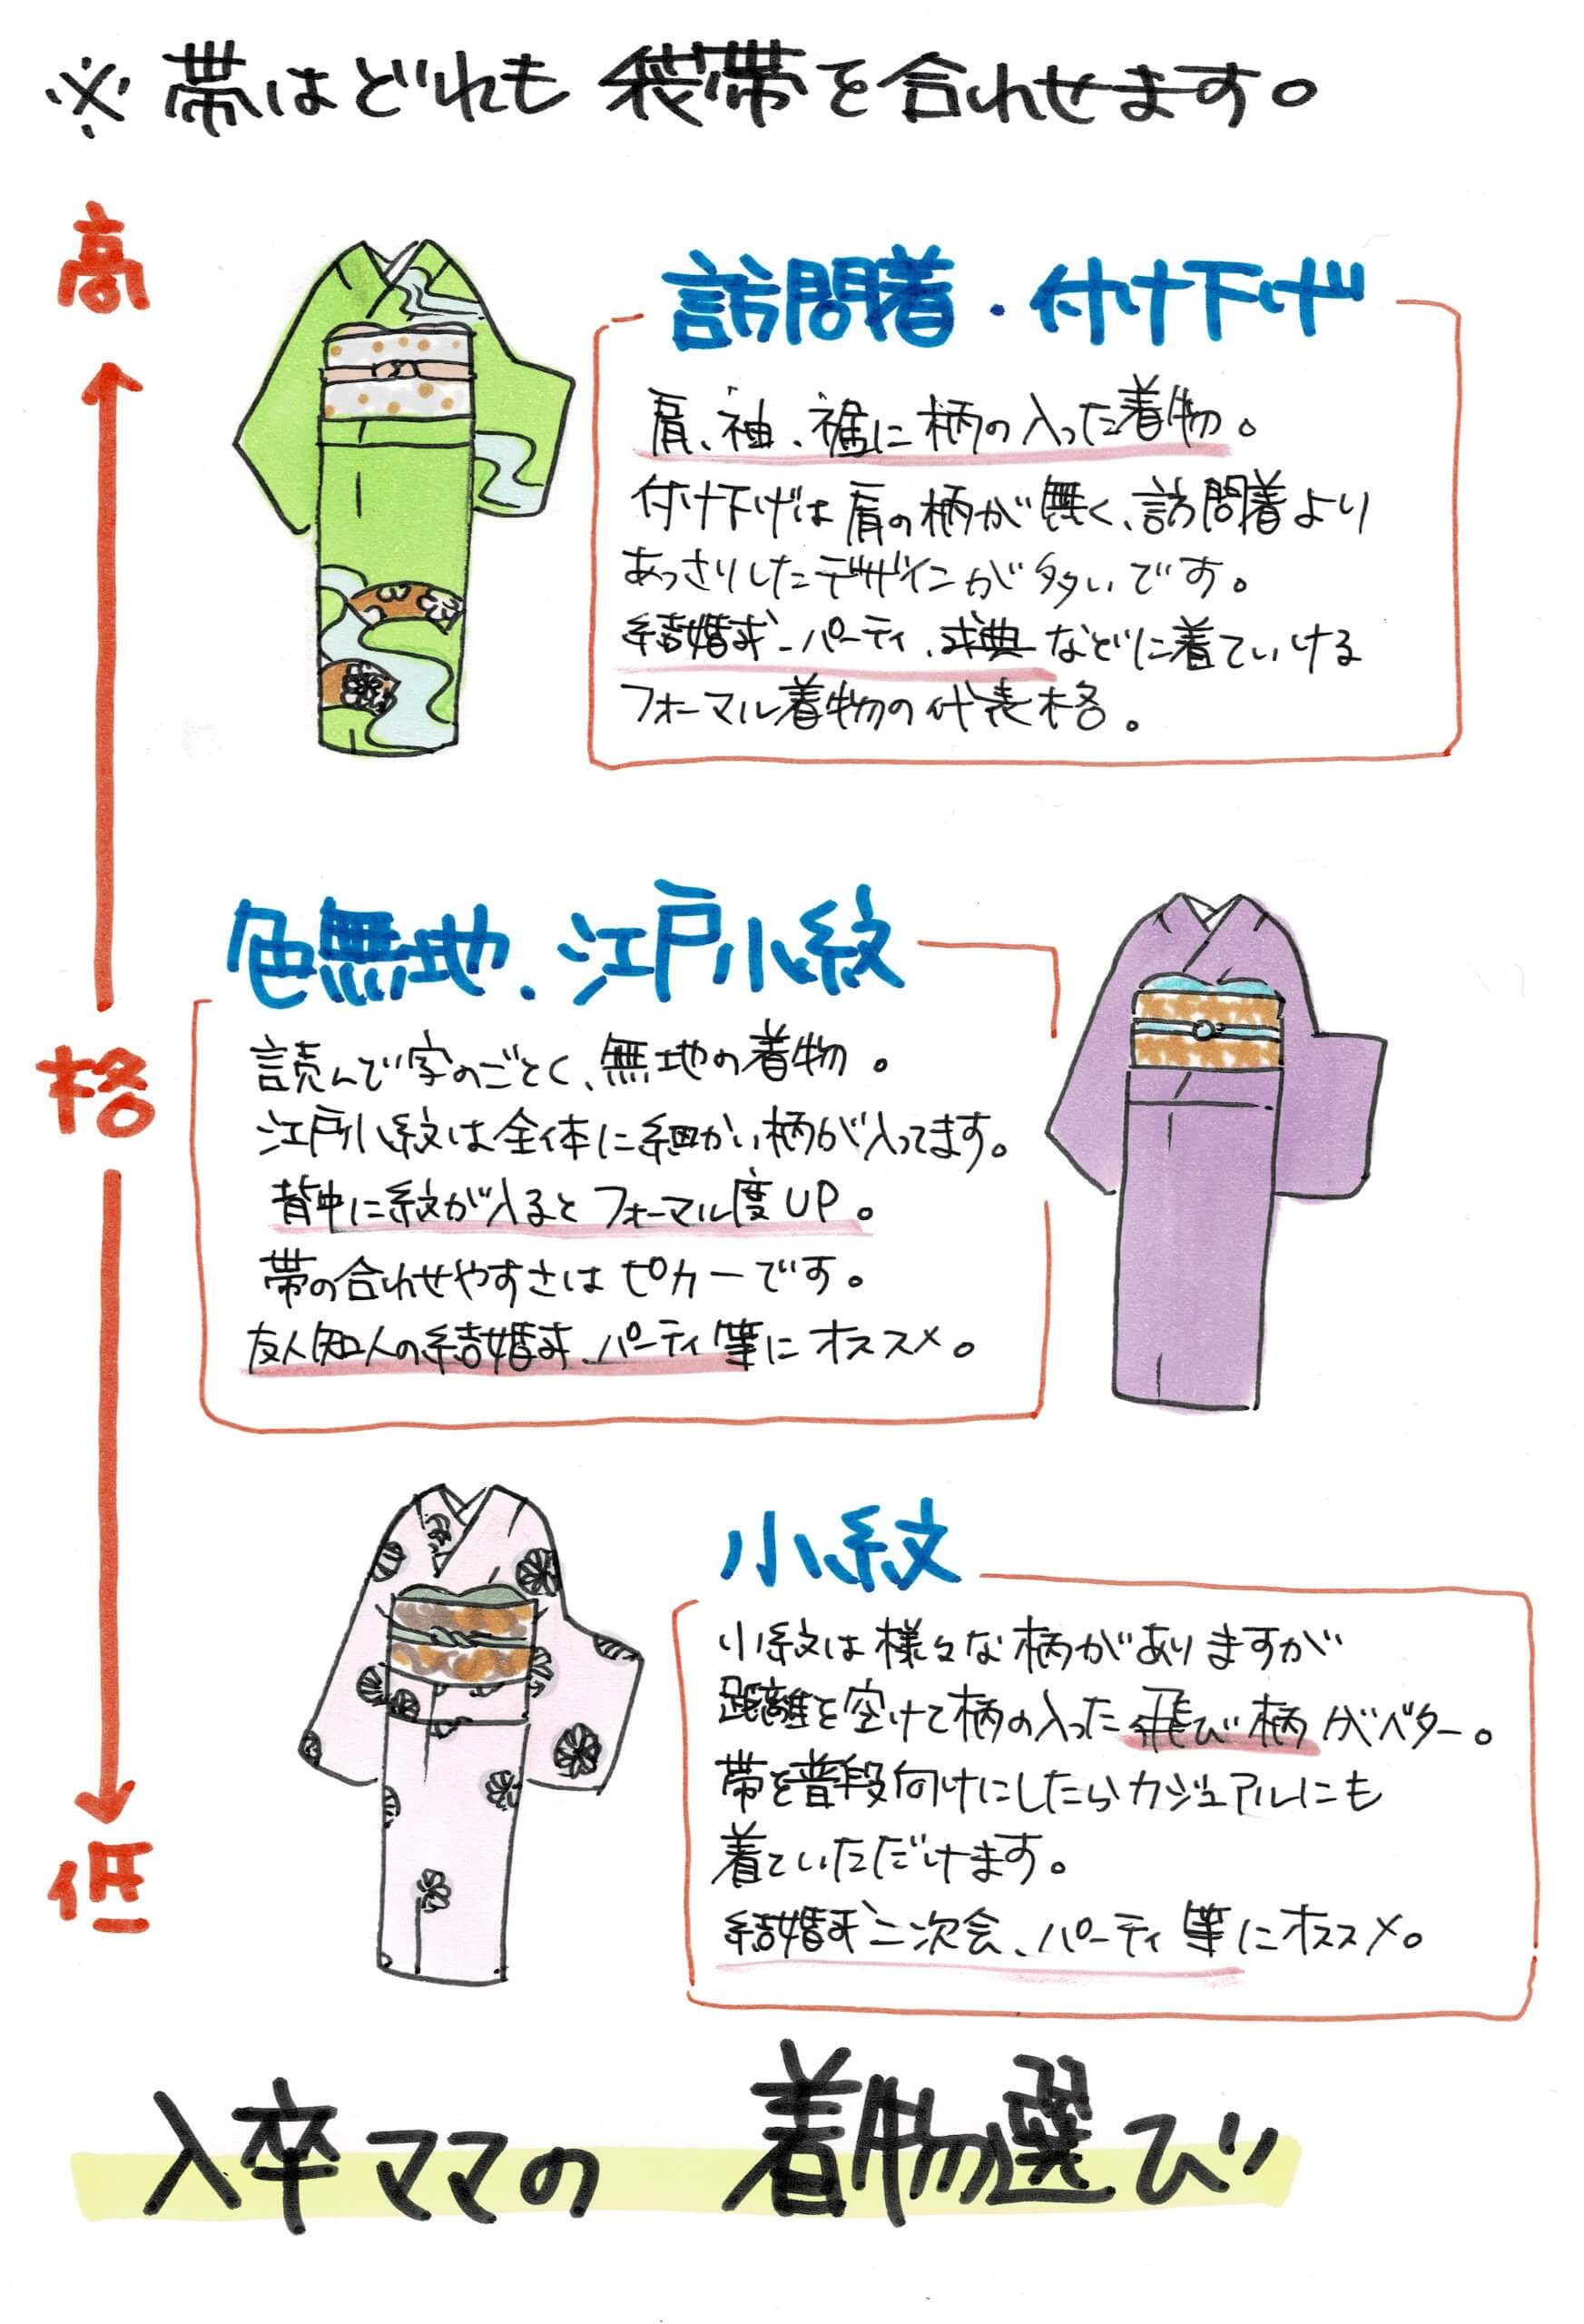 ※帯はどれも袋帯を合わせます。
高
訪問着・付け下げ
肩、袖、裾に柄の入った着物。
付け下げは肩の柄が無く、訪問着より
あっさりしたデザインが多いです。
結婚式、パーティ、式典などに着ていける
フォーマル着物の代表格。
格
色無地、江戸小紋
読んで字のごとく、無地の着物。
江戸小紋は全体に細かい柄が入ってます。
背中に紋が入るとフォーマル度UP。
帯の合わせやすさはピカ一です。
友人知人の結婚式、パーティ等にオススメ。
小紋
小紋は様々な柄がありますが
距離を空けて柄の入った飛び柄がベター。
帯を普段向けにしたらカジュアルにも
着ていただけます。
結婚式二次会、パーティ等にオススメ。
低
入卒ママの 着物選び